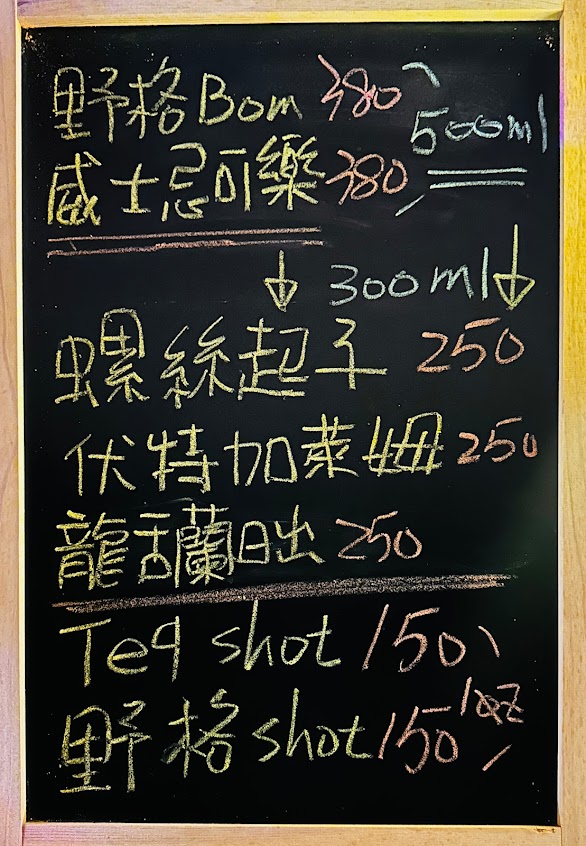 野格Bom 380
500ml
威士忌可樂 380
↓ 300ml ↓
螺絲起子 250
伏特加萊姆 250
龍舌蘭日出 250
Teq shot 150
1oz
野格 shot 150